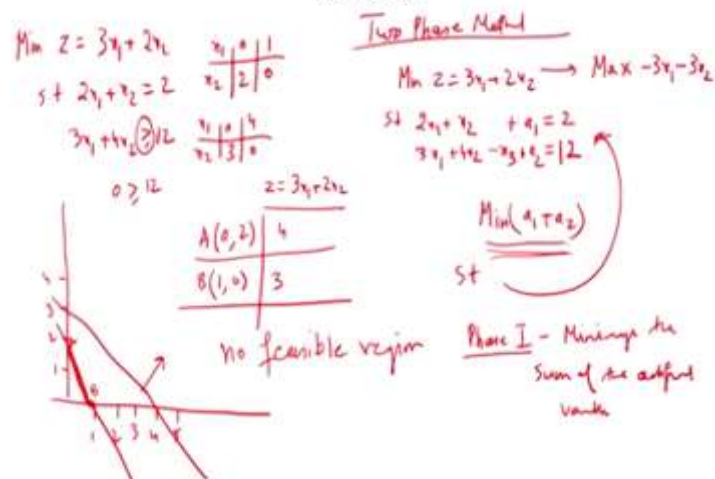 Min z = 3x₁ + 2x₂
st 2x₁ + x₂ = 2
3x₁ + 4x₂ ≥ 12
0 ≥ 12
x₁ | 0 | 1
x₂ | 2 | 0
x₁ | 0 | 4
x₂ | 3 | 0
z = 3x₁ + 2x₂
A(0,2) | 4
B(1,0) | 3
no feasible region
4
3
2
1
B
1 2 3 4
Two Phase Method
Min z = 3x₁ + 2x₂ → Max -3x₁ - 3x₂
st 2x₁ + x₂ + a₁ = 2
3x₁ + 4x₂ - x₃ + a₂ = 12
Min (a₁ + a₂)
st
Phase I - Minimize the
Sum of the